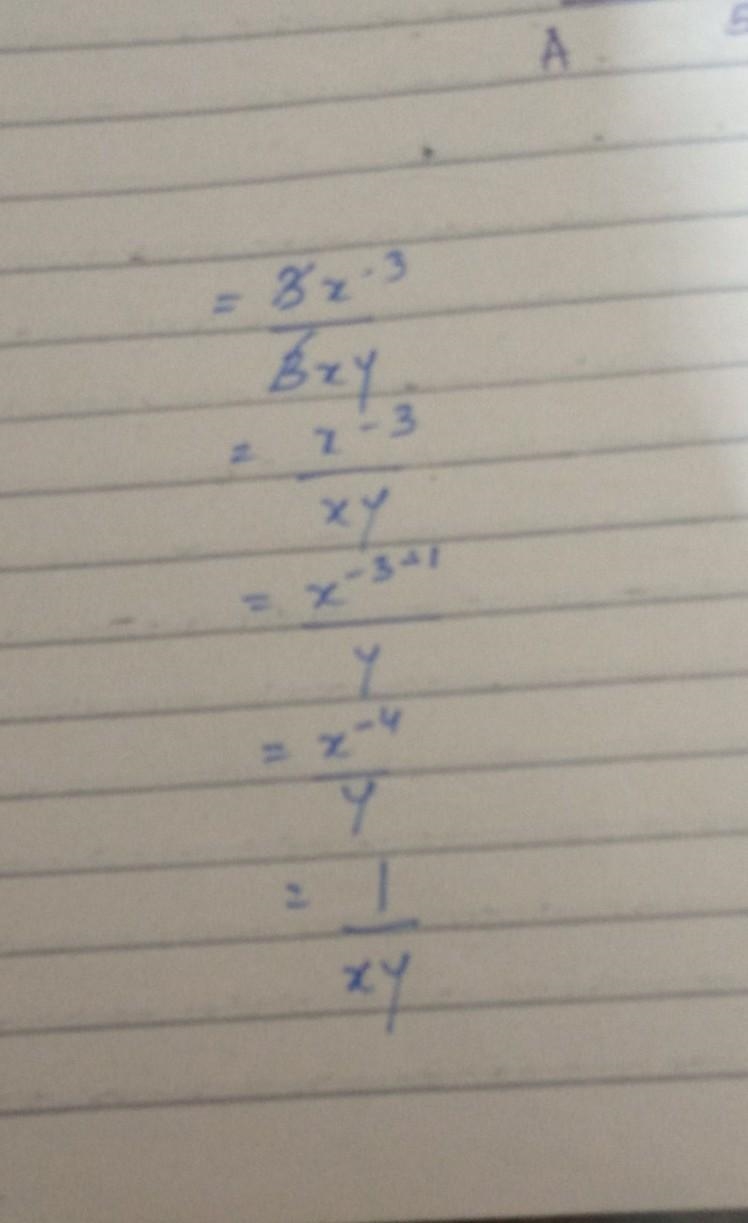 A 5
= 3x^-3 / 3xy
= x^-3 / xy
= x^-3-1 / y
= x^-4 / y
= 1 / xy